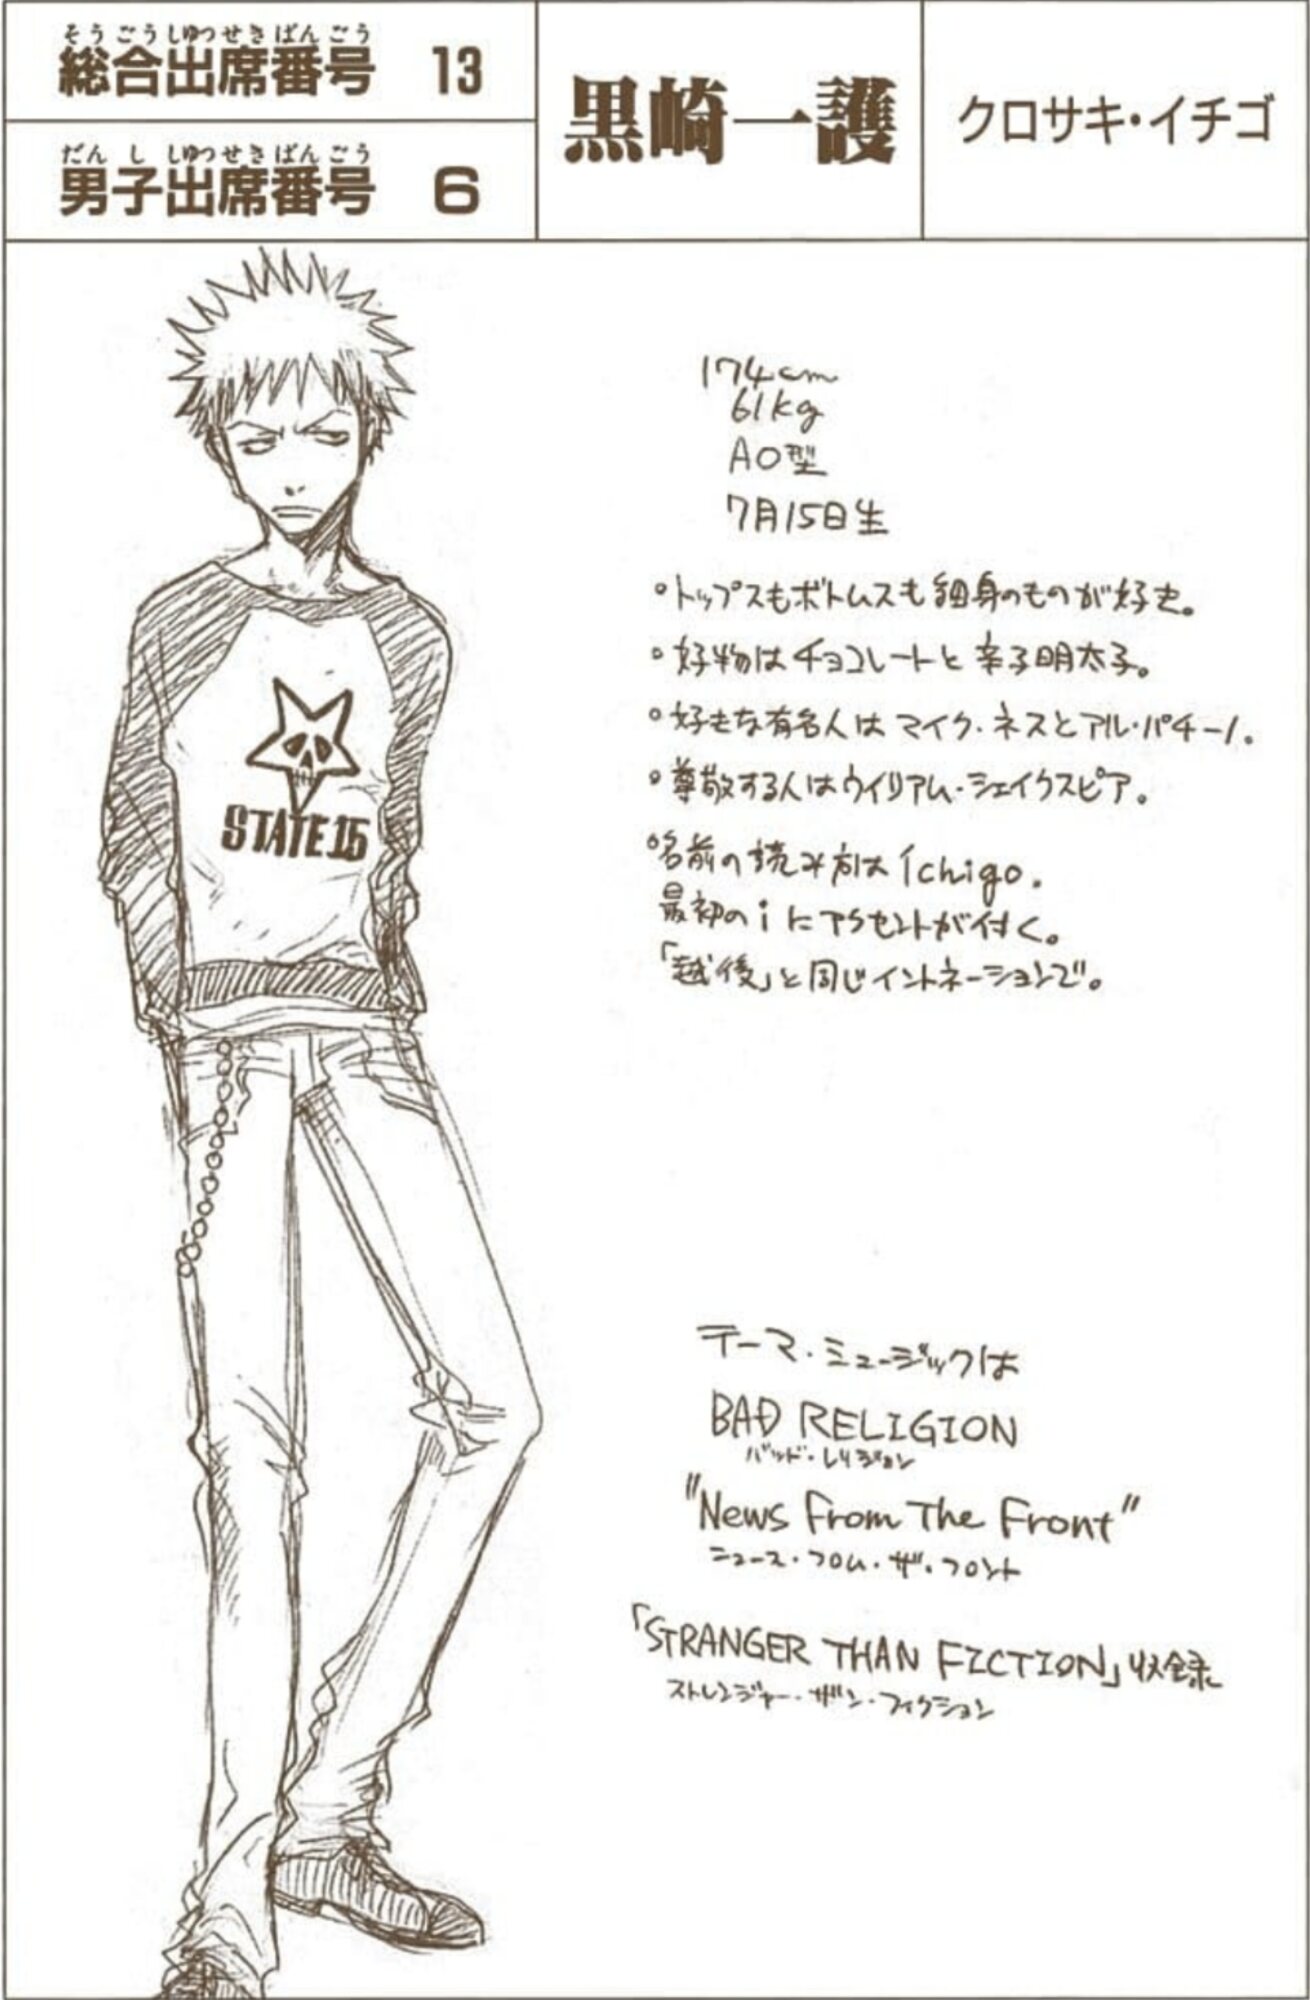 そうごうしゅっせきばんごう
総合出席番号 13
だんししゅっせきばんごう
男子出席番号 6
黒崎一護
クロサキ・イチゴ
174cm
61kg
AO型
7月15日生
・トップスもボトムスも細身のものが好き。
・好物はチョコレートと辛子明太子。
・好きな有名人はマイク・ネスとアル・パチーノ。
・尊敬する人はウイリアム・シェイクスピア。
・名前の読み方はIchigo.
最初のiにアクセントが付く。
「越後」と同じイントネーションで。
STATE 15
テーマ・ミュージックは
BAD RELIGION
バッド・レリジョン
"News From The Front"
ニュース・フロム・ザ・フロント
「STRANGER THAN FICTION」収録
ストレンジャー・ザン・フィクション